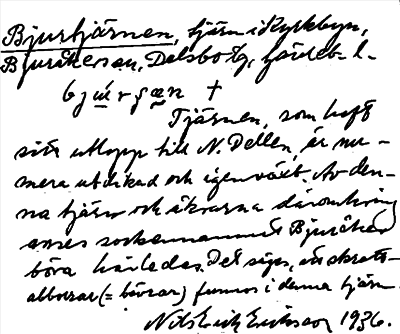 Bjurtjärnen, tjärn i Kyrkbyn,
Bjuråkers sn, Delsbo tg, Gävleb. l.
bjuršæn †
Tjärnen, som haft
sitt utlopp till N. Dellen, är nu-
mera utdikad och igenväxt. Av den-
na tjärn och åkrarna däromkring
anses sockennamnet Bjuråker
böra härledas. Det säges, att skratt-
albovrar (= bävrar) funnos i denna tjärn.
Nils Erik Eriksson 1936.